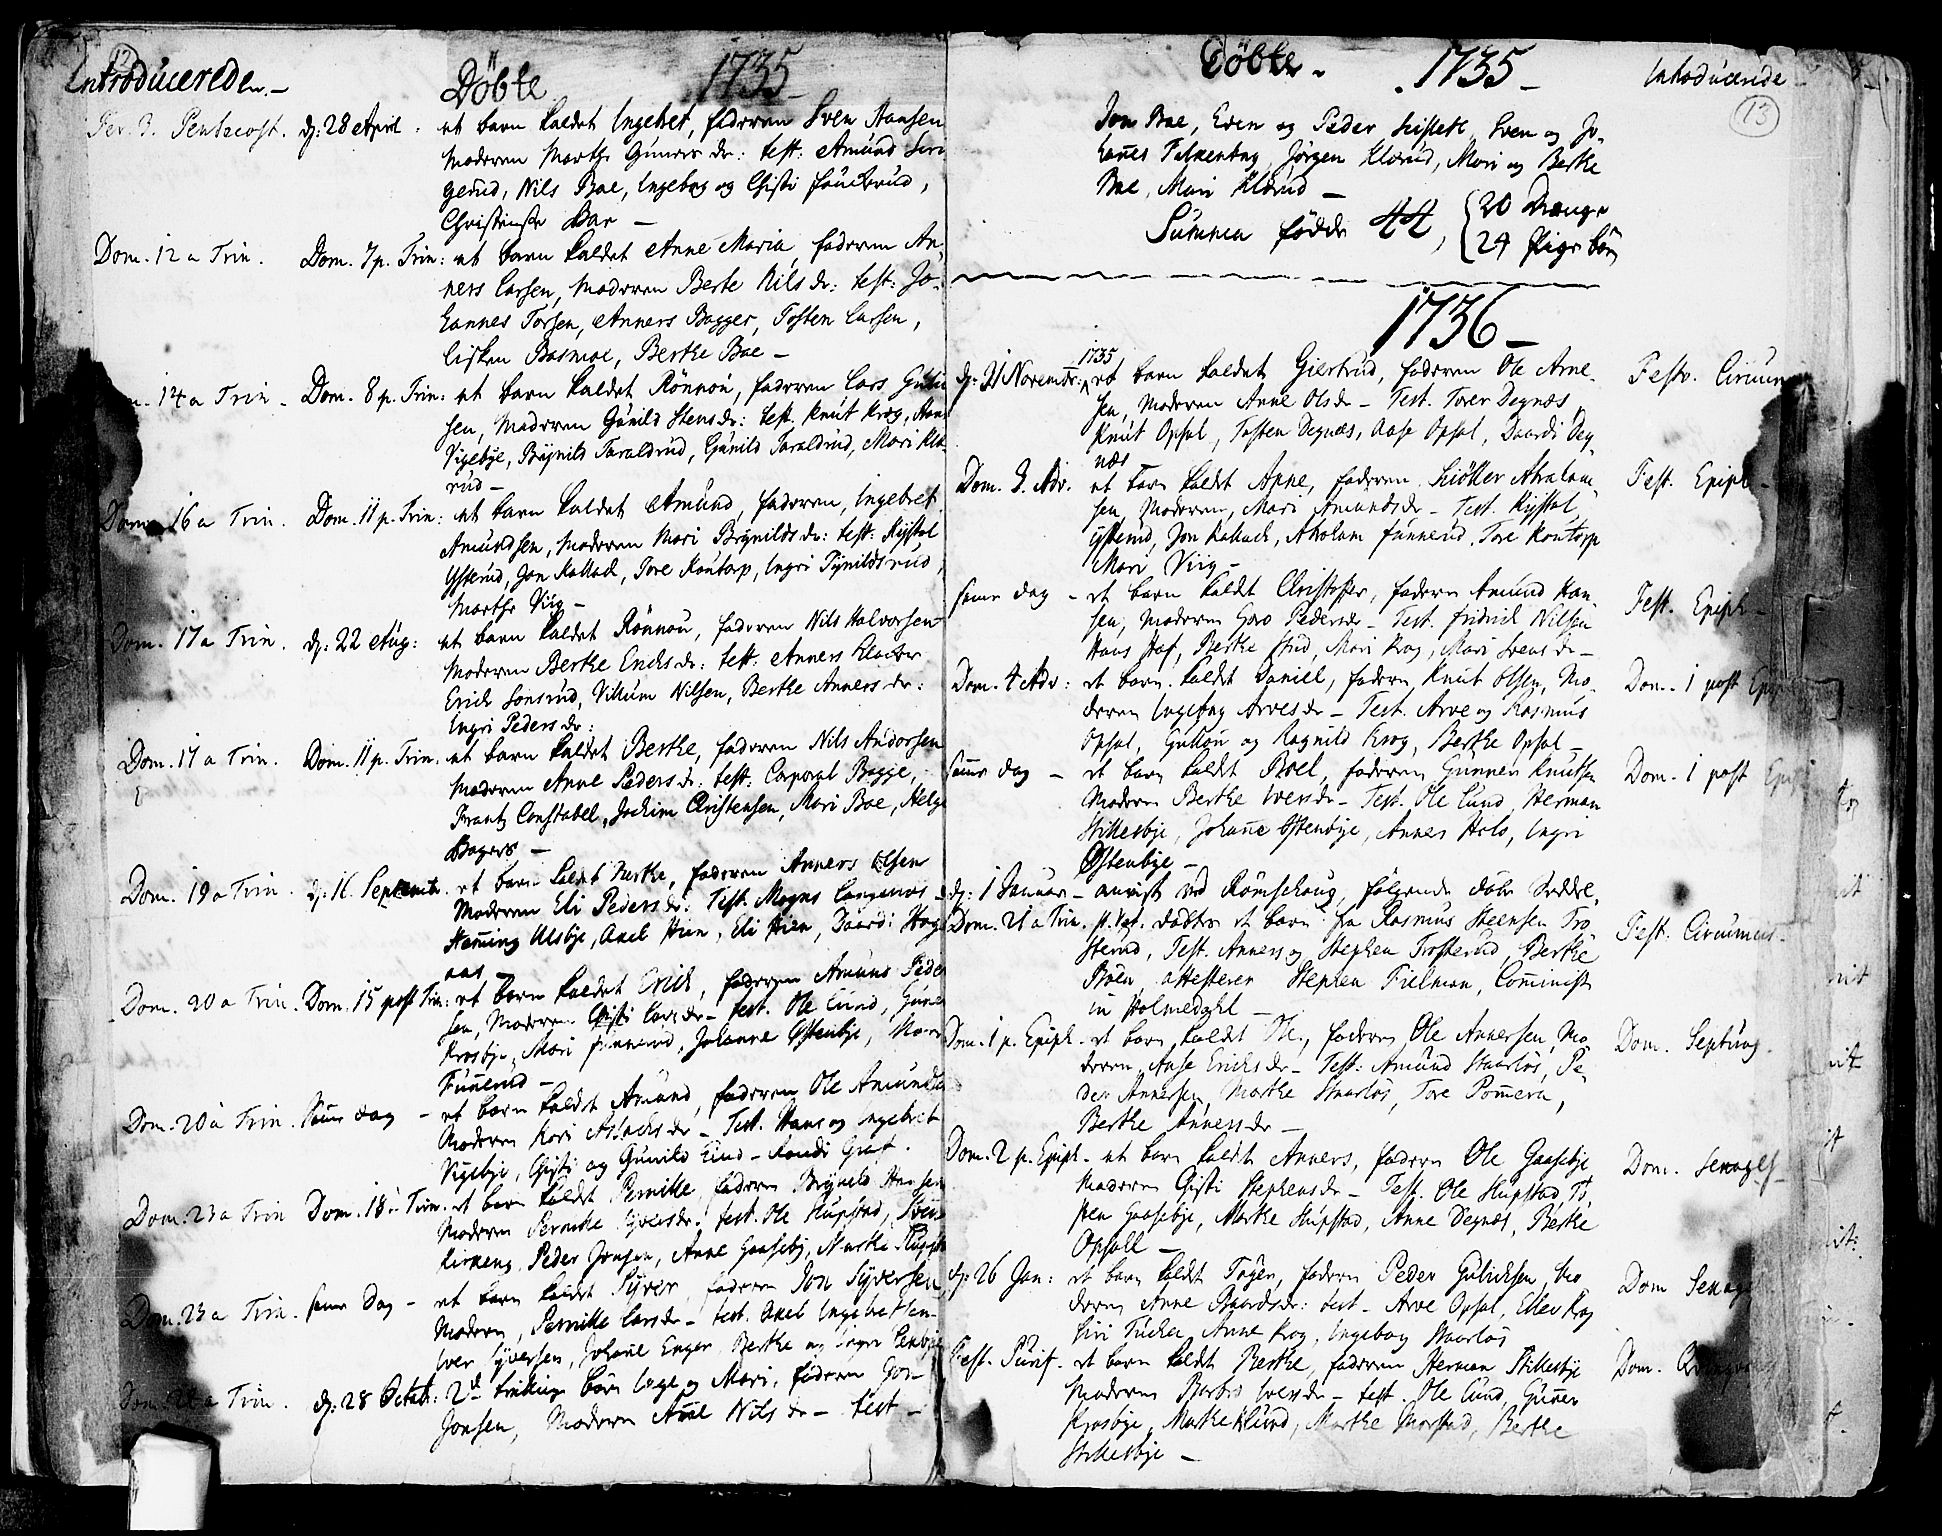 12
Introducerede. -
Döbte 1735 -
Fer. 3. Pentecost. d: 28 April. et barn kaldet Ingebret, faderen Sven Hansen
moderen Marthe Gunders dr: test: Amund
gerud, Nils Boe, Ingebog og Chisti
Christense Boe -
Dom. 12 a Trin. Dom. 7 p. Trin: et barn kaldet Anne Maria, faderen An-
ners Larsen, moderen Berte Nils dr: test: Jo-
hannes Torsen, Anners Bagger, Tosten Larsen,
Lisken Basmoe, Berthe Boe -
14 a Trin - Dom. 8 p. Trin: et barn kaldet Rönnou, faderen Lars
sen, moderen Gunild Stens dr: test. Knut Krog,
Vigebye, Brynild Taraldrud, Gunild Taraldrud, Mari
rud -
Dom. 16 a Trin. Dom. 11 p. Trin: et barn kaldet Amund, faderen, Ingebret
Amundsen, moderen Mari Brynilds dr: test: Kystol
Ysterud, Jon Kollock, Tore Kontorp, Ingri Tynildsrud,
Marthe Viig -
Dom. 17 a Trin. d: 22 Aug: et barn kaldet Rönnou, faderen Nils Halvorsen
moderen Berthe Erichs dr: test: Anners
Erich Sonsrud, Villum Nilsen, Berthe Anners dr:
Ingri Peders dr:
Dom. 17 a Trin. Dom. 11 p. Trin. et barn kaldet Berthe, faderen Nils Andorsen
moderen Anne Peders dr. test: Corporal Bagge,
Frantz Constabel, Jochim Christensen, Mari Boe, Helge
Bagers -
Dom. 19 a Trin. d: 16. Septemb. et barn kaldet Marthe, faderen Anners Olsen
Moderen Eli Peders dr: Test. Mogns
Hemming Ulsbye, Axel Hien, Eli Hien, Baardi
aas -
Dom. 20 a Trin. Dom. 15 post Trin: et barn kaldet Erich, faderen Amund Peder
sen, Moderen Chisti Lars dr - test. Ole Lund, Guner
Krosbye, Mari Funnerud, Johanne Ostenbye, Mari
Funnerud -
Dom. 20 a Trin. Same dag - et barn kaldet Amund, faderen Ole Amundsen
Moderen Kari Aslachs dr - Test. Hans og Ingebret
Vigebye, Gisti og Gunild Lund - Randi Graf.
Dom. 23 a Trin Dom. 18 a Trin. et barn kaldet Pernille, faderen Brynild Hansen
Moderen Pernille Syvers dr. test. Ole Skupstad,
Kirkeng, Peder Jonsen, Anne Gaasebye, Marthe
Dom. 23 a Trin. Same Dag - et barn kaldet Syver, faderen Jon Syversen,
Moderen, Pernille Lars dr - test. Axel Ingebretsen
Iver Syversen, Johane Enger, Berthe og Ingri
a Trin. d: 28 Octob: 2de trilling börn Lage og Mari, faderen Jon
Jonsen, Moderen Anne Nils dr - test -
Döbte - 1735 - Introducerede -
13
Jon Boe, Even og Peder Sven og Jo-
hannes Jörgen Klörud, Mari og Berthe
Boe, Mari Klörud -
Summa födde 44, { 20 Drenge
24 Pige börn
1736 -
1735
d: 21 Novembr: et barn kaldet Giertrud, faderen Ole Arne- Festo. Circum
sen, Moderen Anne Olsdr - Test. Torer Degnæs
Knut Opsal, Tosten Degnæs, Aase Opsal, Baardi Deg-
næs
Dom. 3. Adv. et barn kaldt Anne, faderen Skiötter Abraham- Fest. Epiph -
sen, Moderen, Mari Amundsdr - Test. Kystol
Ysterud, Jon Kollock, Abraham Funnerud, Tore Kontorp
Mari Viig -
Same dag - et barn kaldet Christopher, faderen Amund Han- Fest. Epiph -
sen, Moderen Goro Pedersdr - Test. Fridrich Nilsen
Hans Hof, Berthe Mari Krog, Mari Svens dr -
Dom. 4 Adv: et barn kaldt Daniel, faderen Knut Olsen, Mo- Dom. 1 post Epiph
deren Ingebog Arves dr - Test. Arve og Rasmus
Opsal, Gullou og Ragnild Krog, Berthe Opsal -
Same dag - et barn kaldet Boel, faderen Gunner Knutsen Dom. 1 post Epiph
Moderen Berthe Iversdr - Test. Ole Lund, Herman
Skillesbye, Johanne Ostenbye, Annes Holo, Ingri
Ostenbye -
d: 1 Januar - anviist ved Römschoug, fölgende döbe Seddel,
Dom. 21 a Trin. döbtes et barn fra Rasmus Steensen Tro- Fest. Circumcis -
sterud, Test. Anners og Stephen Trosterud, Berthe
attesterer Stephen Tielman, Cominist
in Holmedahl -
Dom. 1 p. Epiph. et barn kaldt Ole, faderen Ole Annersen, Mo- Dom. Septuag.
deren Aase Erichs dr - Test: Amund Skaarlös, Pe-
der Annersen, Marthe Skaarlös, Tore Pomeren,
Berthe Annersdr -
Dom. 2 p. Epiph - et barn kaldt Anners, faderen Ole Gaasebye Dom. Sexages -
Moderen Gisti Stephensdr - Test. Ole Skupstad, To-
sten Gaasebye, Marthe Skupstad, Anne Degnæs, Berthe
Opsall -
d: 26 Jan: et barn kaldt Tagen, faderen Peder Gulichsen, Mo- Dom Sexages
deren Anne Baardsdr: test - Arve Opsal, Ellev Krog
Siri Tucker, Anne Krog, Ingebog Skaarlös
Fest. Purif. et barn kaldt Berthe, faderen Herman Skillesbye Dom.
Moderen Barbro Iversdr - test. Ole Lund, Gunner
Krosbye, Marthe Lund, Marthe Morstad, Berthe
Skillesbye -